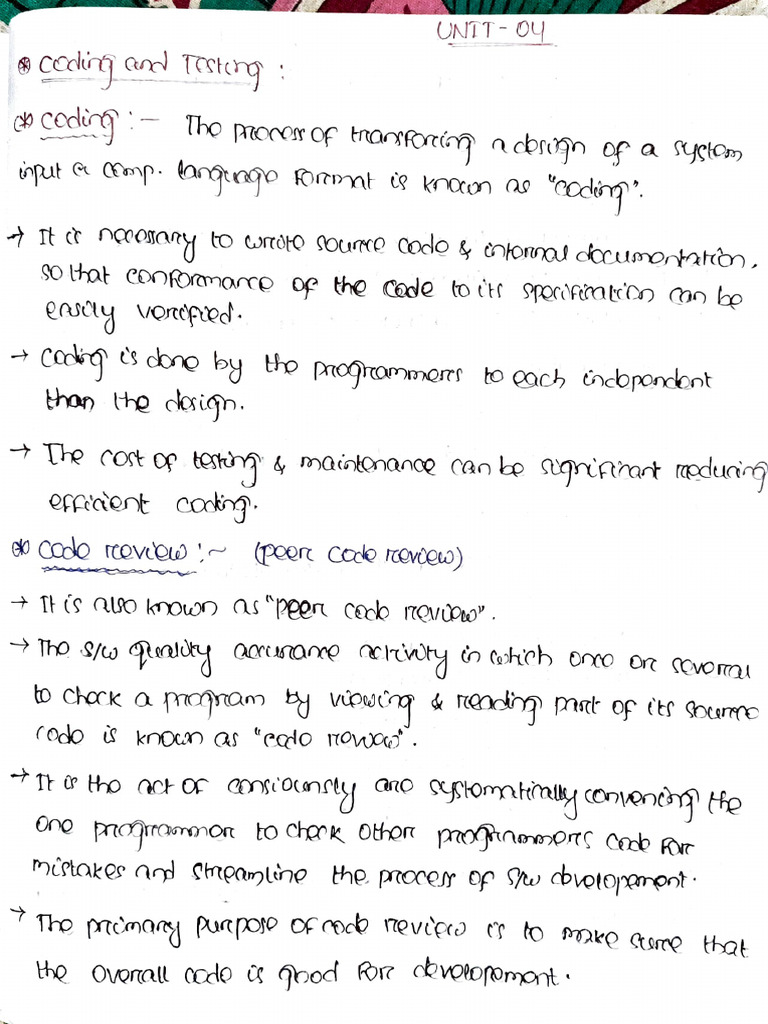 UNIT-04
* Coding and Testing :
* Coding :- The process of transforcing a design of a system
input a comp. language format is known as "coding".
→ It is necessary to write source code & internal documentation,
so that conformance of the code to its specification can be
easily verified.
→ Coding is done by the programmers to each independent
than the design.
→ The cost of testing & maintenance can be significant reducing
efficient coding.
* code review :~ (peer code review)
→ It is also known as "peer code review".
→ The s/w quality accurance activity in which once or several
to check a program by viewing & reading part of its source
code is known as "code review".
→ It is the act of consiounsly and systematically convencing the
one programmer to check other programmers code for
mistakes and streamline the process of s/w developement.
→ The primary purpose of code review is to make sure that
the overall code is good for developement.